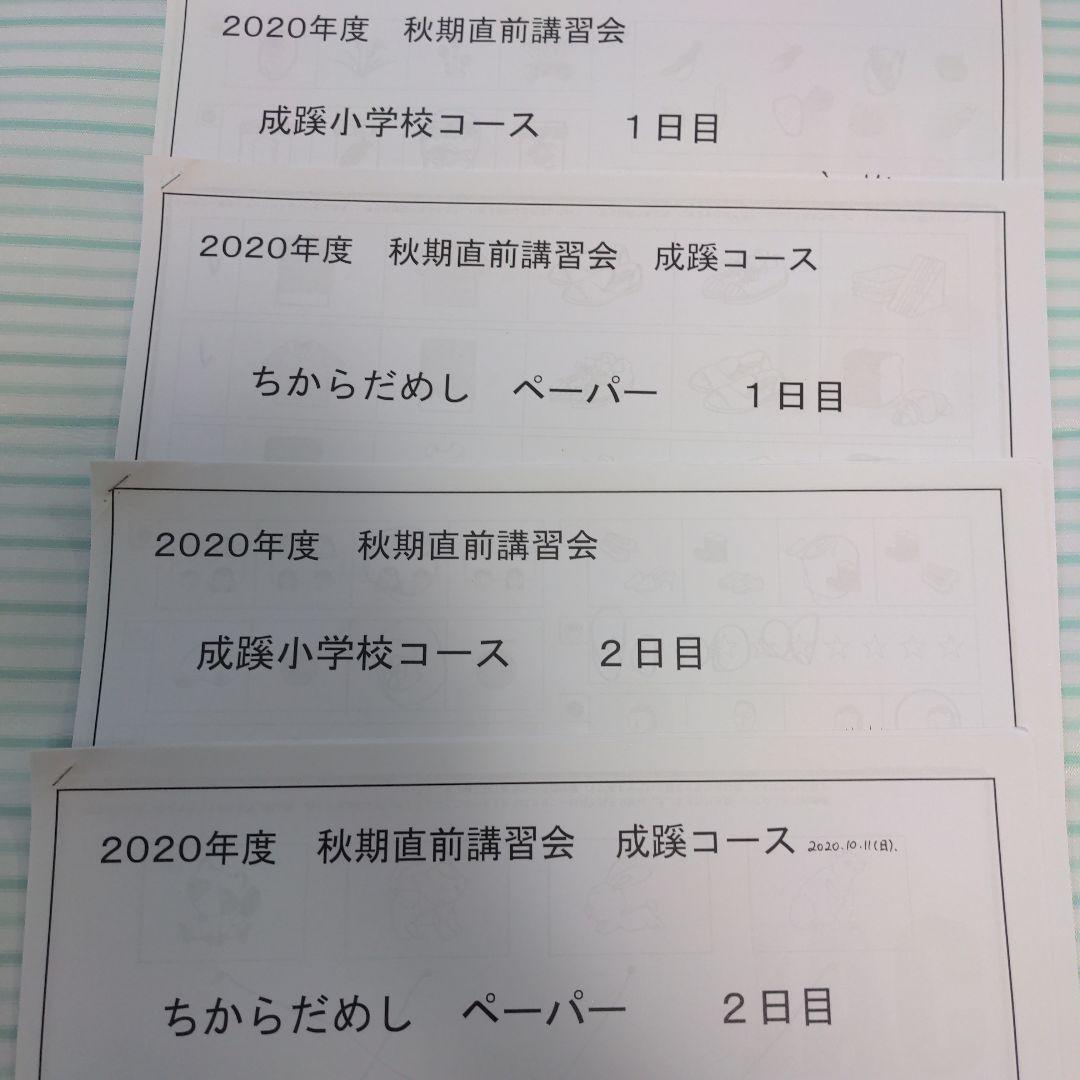 2020年度　秋期直前講習会
成蹊小学校コース　1日目
2020年度　秋期直前講習会　成蹊コース
ちからだめし　ペーパー　1日目
2020年度　秋期直前講習会
成蹊小学校コース　2日目
2020年度　秋期直前講習会　成蹊コース 2020.10.11(日).
ちからだめし　ペーパー　2日目